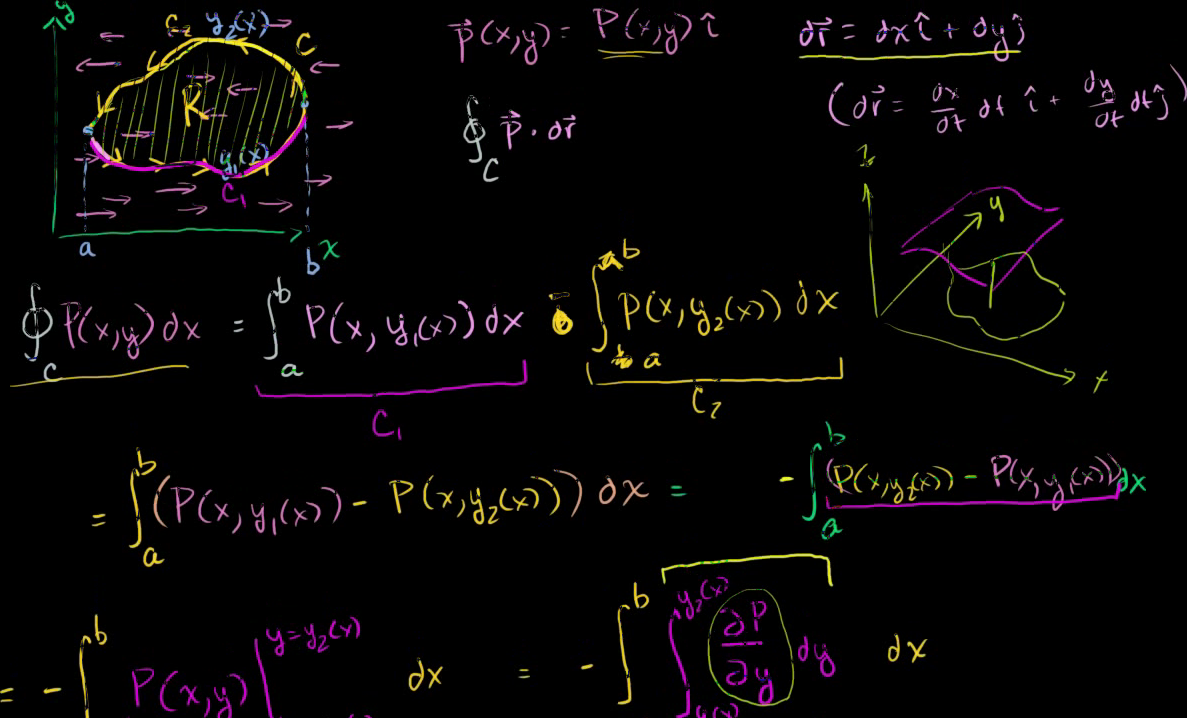 y C₂ y₂(x) C
R
y₁(x)
C₁
a b x
P⃗(x,y) = P(x,y) î
dr⃗ = dx î + dy ĵ
(dr⃗ = dx/dt dt î + dy/dt dt ĵ)
∮_C P⃗ · dr⃗
z y x
∮_C P(x,y) dx = ∫_a^b P(x, y₁(x)) dx - ∫_a^b P(x, y₂(x)) dx
C₁ C₂
= ∫_a^b (P(x, y₁(x)) - P(x, y₂(x))) dx = - ∫_a^b (P(x, y₂(x)) - P(x, y₁(x))) dx
= - ∫^b P(x,y) |^{y=y₂(x)} dx = - ∫^b ∫_{y₁(x)}^{y₂(x)} ∂P/∂y dy dx